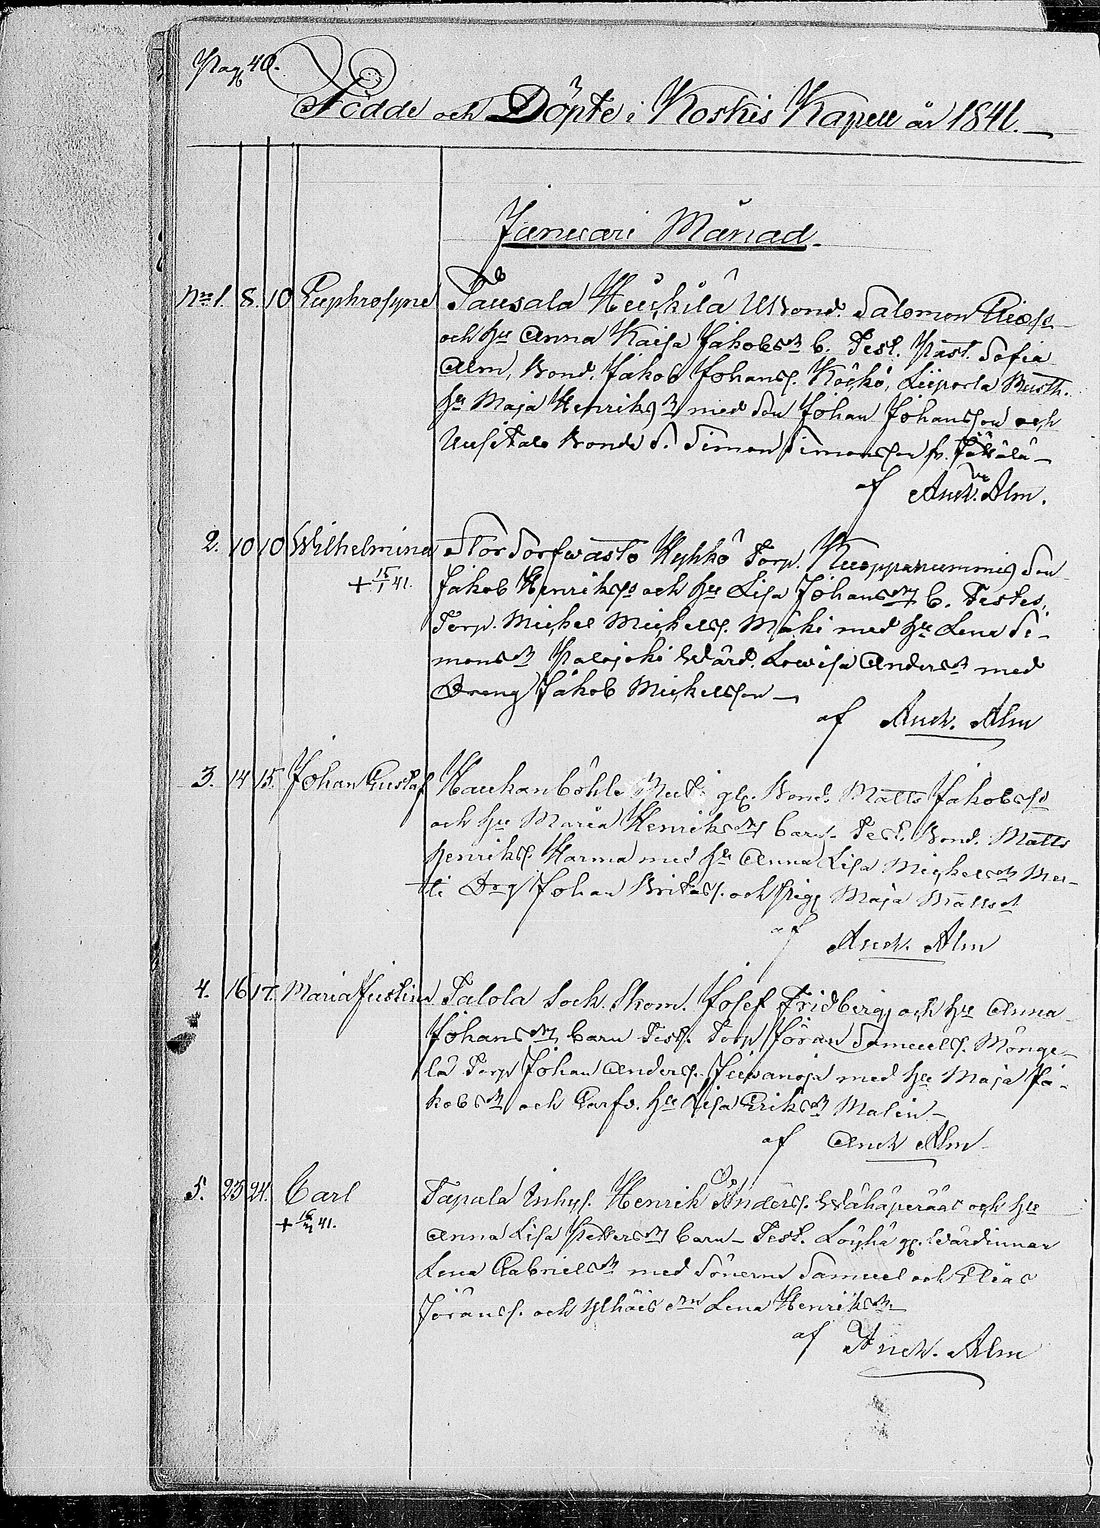 Pag 40.
Födde och Döpte i Koskis Kapell år 1841.
Januari Månad.
No 1. 8. 10 Euphrosyne Tausala Heickilä Ubond. Salomon
och Hu Anna Kaisa Jakobsdr b. Test. Past. Sofia
Alm, Bond. Jakob Johanss. Köckö, Liiperla Rusth.
Hu Maja Henriksdr med Son Johan Johansson och
Bonde S. Simon Simonsson fr.
af And. Alm.
2. 10 10 Wilhelmina Stor Sorfwasto Hyhkö Torp. Kuoppanummis Son
+ 15/1 41.
Jakob Henrikss och Hu Lisa Johansdr b. Testes,
Torp. Michel Michelss. Mäki med Hu Lena Si-
monsdr Palojoki Wärd. Lowisa Andersdr med
Dreng Jakob Michelsson
af And. Alm
3. 14 15. Johan Gustaf Haukanböhle gb. Bond. Matts Jakobss
och Hu Maria Henriksdr barn. Test. Bond. Matts
Henrikss. Harma med Hu Anna Lisa Michelsdr Mar-
ti Drg Johan Britass. och Pig Maja Mattsd.
af And. Alm
4. 16 17. Maria Justina Talola Sock. Skom. Josef Fridberg och Hu Anna
Johansdr, barn Test. Torp Jöran Samuels. Mönge-
lä Torp Johan Anderss. Juwanoja med Hu Maja Ja-
kobsdr och Garfv. Hu Lisa Eriksdr Malin
af And Alm
5. 23 24. Carl Tapala Inhys. Henrik Anderss. Wähäperään och Hu
+ 41.
Anna Lisa Pettersdr barn Test. Löyhä gp. Wärdinnan
Lena Gabrielsdr med Sönerne Samuel och Elias
Jöranss. och Ylhäis Lena Henriksdr
af And. Alm